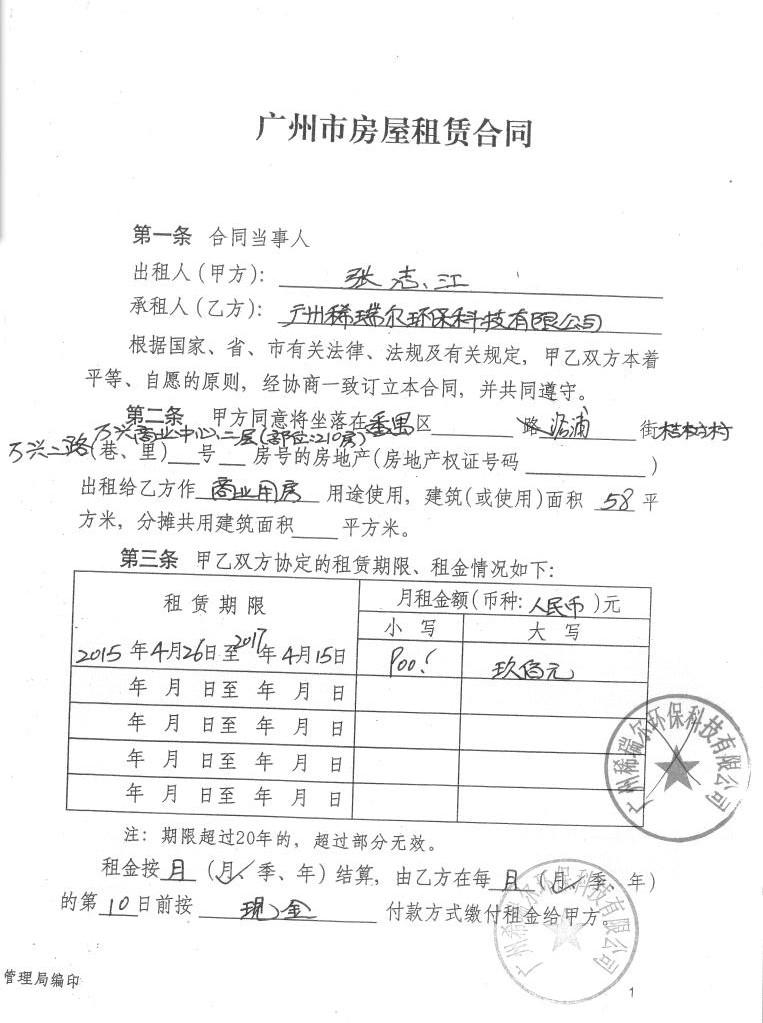 广州市房屋租赁合同
第一条 合同当事人
出租人(甲方): 张志江
承租人(乙方): 广州稀瑞尔环保科技有限公司
根据国家、省、市有关法律、法规及有关规定,甲乙双方本着
平等、自愿的原则,经协商一致订立本合同,并共同遵守。
第二条 甲方同意将坐落在番禺区 路 街
万兴二路万兴商业中心二层(部位:210房)
(巷、里) 号 房号的房地产(房地产权证号码 )
出租给乙方作 商业用房 用途使用,建筑(或使用)面积 58 平
方米,分摊共用建筑面积 平方米。
第三条 甲乙双方协定的租赁期限、租金情况如下:
租赁期限 月租金额(币种:人民币)元
小写 大写
2015年4月26日至2017年4月15日 玖佰元
年 月 日至 年 月 日
年 月 日至 年 月 日
年 月 日至 年 月 日
年 月 日至 年 月 日
注:期限超过20年的,超过部分无效。
租金按 月 (月✓、季、年)结算,由乙方在每 月 (月✓、季、年)
的第 10 日前按 现金 付款方式缴付租金给甲方。
广州稀瑞尔环保科技有限公司
广州稀瑞尔环保科技有限公司
管理局编印
1